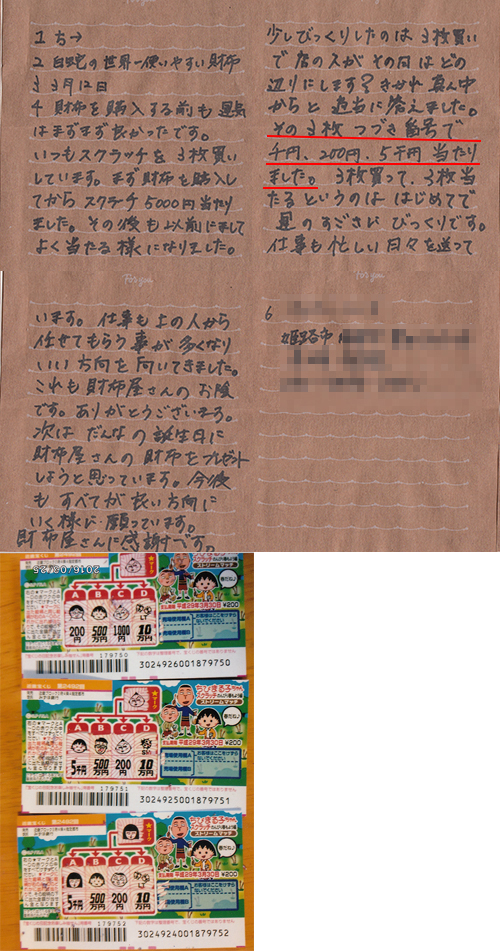 1 ち→
2 白蛇の世界一使いやすい財布
3 3月12日
4 財布を購入する前も運気
はまずまず良かったです。
いつもスクラッチを3枚買い
しています。まず財布を購入し
てからスクラッチ5000円当たり
ました。その後も以前にまして
よく当たる様になりました。
少しびっくりしたのは3枚買い
で店の人がその日はどの
辺りにします?きかれ真ん中
からと適当に答えました。
その3枚つづき番号で
千円、200円、5千円当たり
ました。3枚買って、3枚当
たるというのははじめてで
運のすごさにびっくりです。
仕事も忙しい日々を送って
For you
For you
います。仕事も上の人から
任せてもらう事が多くなり
いい方向を向いてきました。
これも財布屋さんのお陰
です。ありがとうございます。
次はだんなの誕生日に
財布屋さんの財布をプレゼント
しようと思っています。今後
もすべてが良い方向に
いく様に願っています。
財布屋さんに感謝です。
6
姫路市
2016/03/25
マーク
A B C D
200円 500万円 1000円 10万円
179750
ちびまる子ちゃん
スクラッチ
ストリームマッチ
春だね♪
平成29年3月30日 ¥200
3024926001879750
マーク
A B C D
5千円 500万円 200円 10万円
179751
ちびまる子ちゃん
スクラッチ
ストリームマッチ
春だね♪
平成29年3月30日 ¥200
3024925001879751
マーク
A B C D
5千円 500万円 200円 10万円
179752
ちびまる子ちゃん
スクラッチ
ストリームマッチ
春だね♪
平成29年3月30日 ¥200
3024924001879752